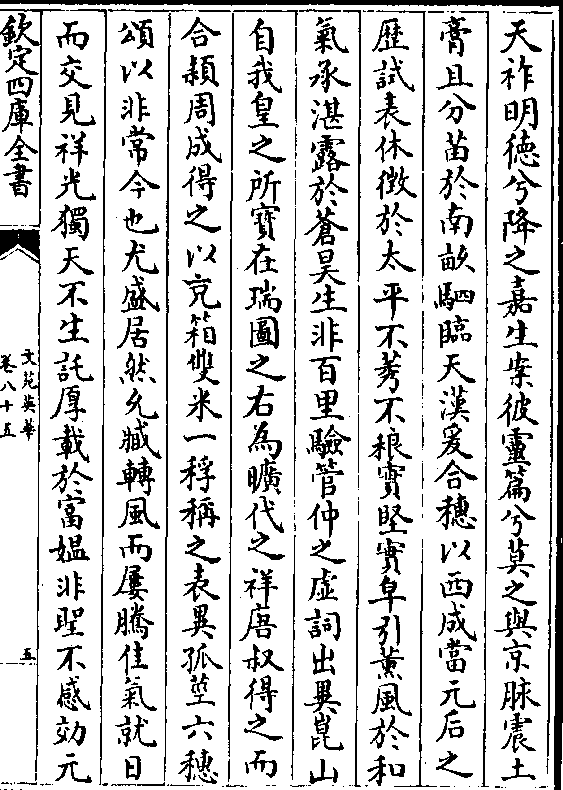 天祚明德兮降之嘉生案彼靈篇兮莫之與京脉震土
膏且分苗於南畝駟臨天漢爰合穗以西成當元后之
歴試表休徴於太平不莠不稂實堅實皁引薰風於和
氣承湛露於蒼昊生非百里驗管仲之虚詞出異崑山
自我皇之所寶在瑞圖之右為曠代之祥唐叔得之而
合穎周成得之以充箱雙米一稃稱之表異孤莖六穗
頌以非常今也尤盛居然允臧轉風而屢騰佳氣就日
而交見祥光獨天不生託厚載於富媪非聖不感効元
欽定四庫全書
文苑英華
卷八十五
五